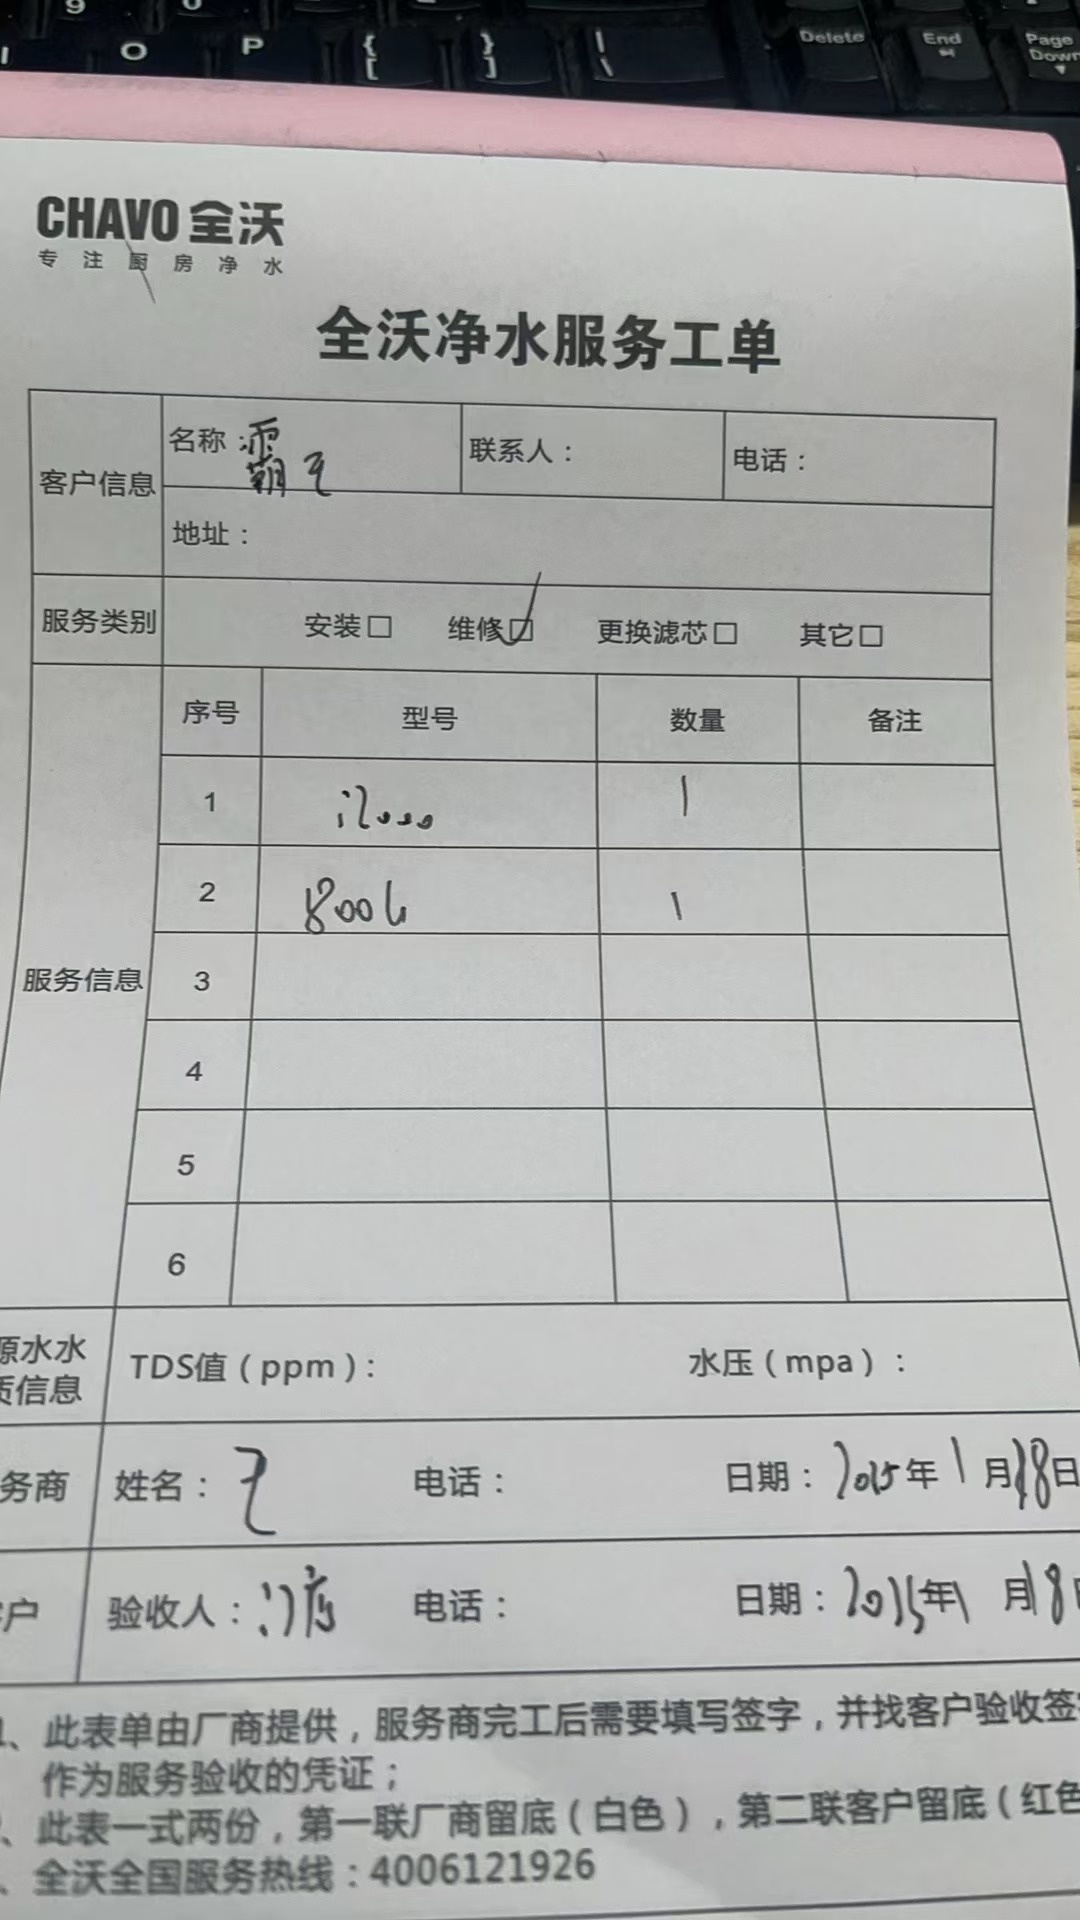 9 0
I O P { [ } ] | \ Delete End Page Down
CHAVO 全沃
专注厨房净水
全沃净水服务工单
客户信息 名称：霸王 联系人： 电话：
地址：
服务类别 安装□ 维修☑ 更换滤芯□ 其它□
服务信息
序号 型号 数量 备注
1 i2000 1
2 800G 1
3
4
5
6
源水水质信息 TDS值（ppm）： 水压（mpa）：
务商 姓名：王 电话： 日期：2025年1月18日
户 验收人：门店 电话： 日期：2025年1月18日
1、此表单由厂商提供，服务商完工后需要填写签字，并找客户验收签
作为服务验收的凭证；
、此表一式两份，第一联厂商留底（白色），第二联客户留底（红色
、全沃全国服务热线：4006121926